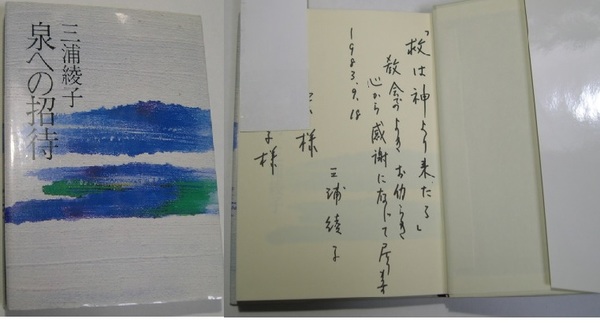 三浦綾子
泉への招待
「救は神より来たる」
教会のよきお働らき
心から感謝に存じて
1983.9.18
三浦綾子
様
子様